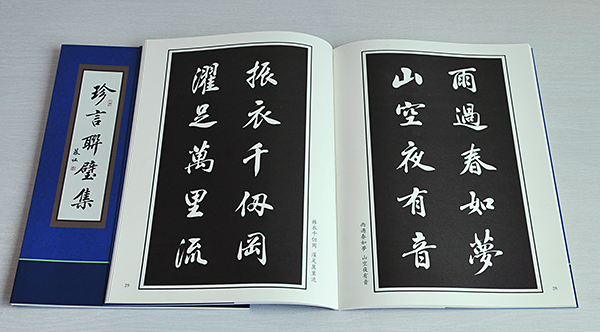 珍言聯璧集
雨過春如夢
山空夜有音
雨過春如夢 山空夜有音
28
振衣千仭岡
濯足萬里流
振衣千仞岡 濯足萬里流
29